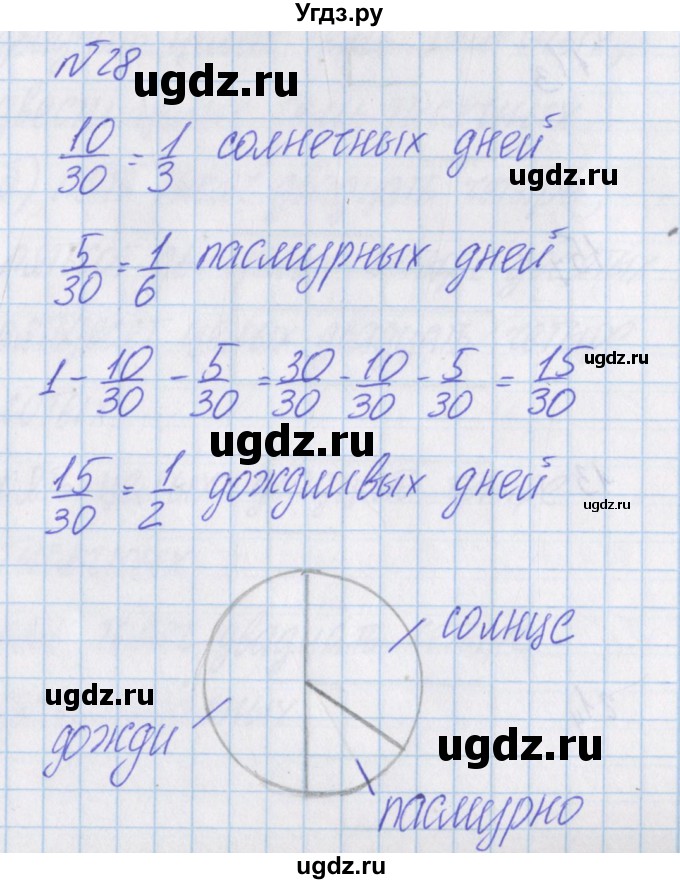 Угдз.ру
№28
ugdz.ru
10/30 = 1/3 солнечных дней
ugdz.ru
5/30 = 1/6 пасмурных дней
1 - 10/30 - 5/30 = 30/30 - 10/30 - 5/30 = 15/30
ugdz.ru
ugdz.ru
15/30 = 1/2 дождливых дней
ugdz.ru
солнце
ugdz.ru
дожди
ugdz.ru
пасмурно
ugdz.ru